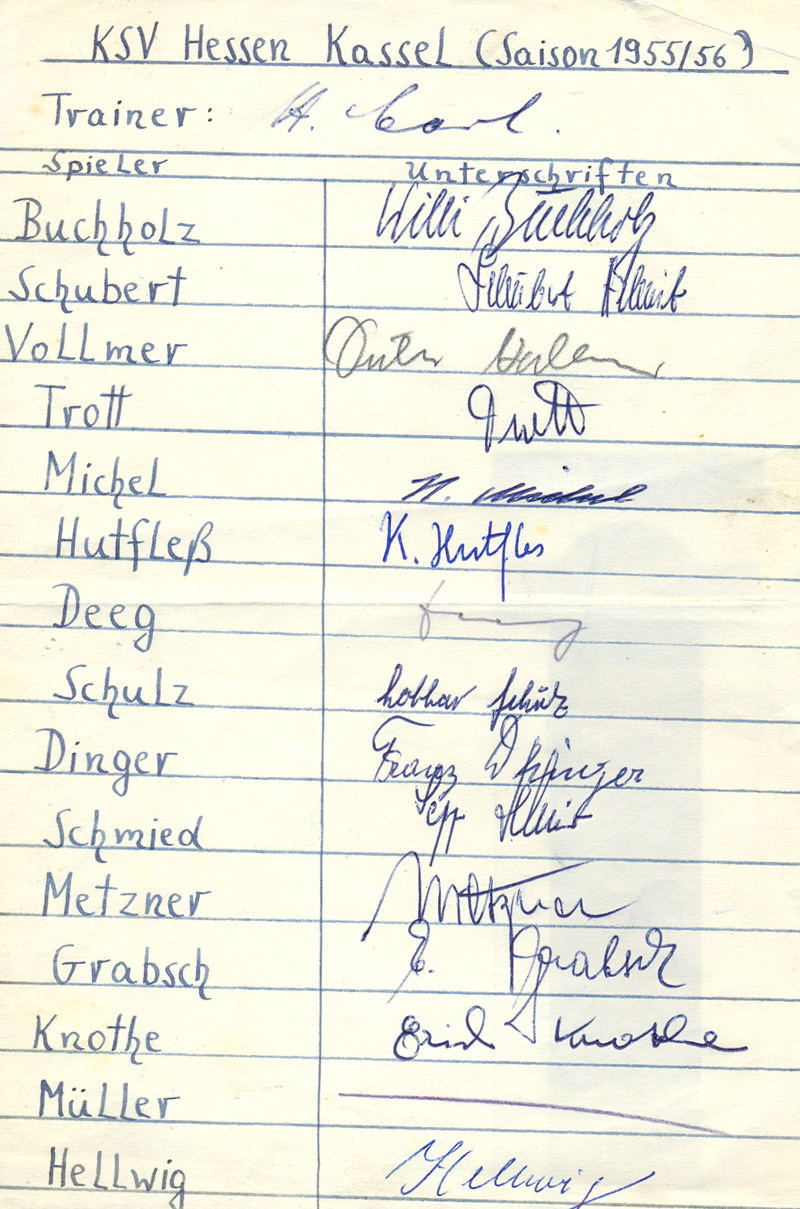 KSV Hessen Kassel (Saison 1955/56)
Trainer: H. Carl.
Spieler Unterschriften
Buchholz Willi Buchholz
Schubert Schubert
Vollmer
Trott Trott
Michel H. Michel
Hutfleß K. Hutfles
Deeg
Schulz Lothar Schulz
Dinger Franz Dinger
Schmied Sepp Schmied
Metzner Metzner
Grabsch E. Grabsch
Knothe Erich Knothe
Müller
Hellwig Hellwig